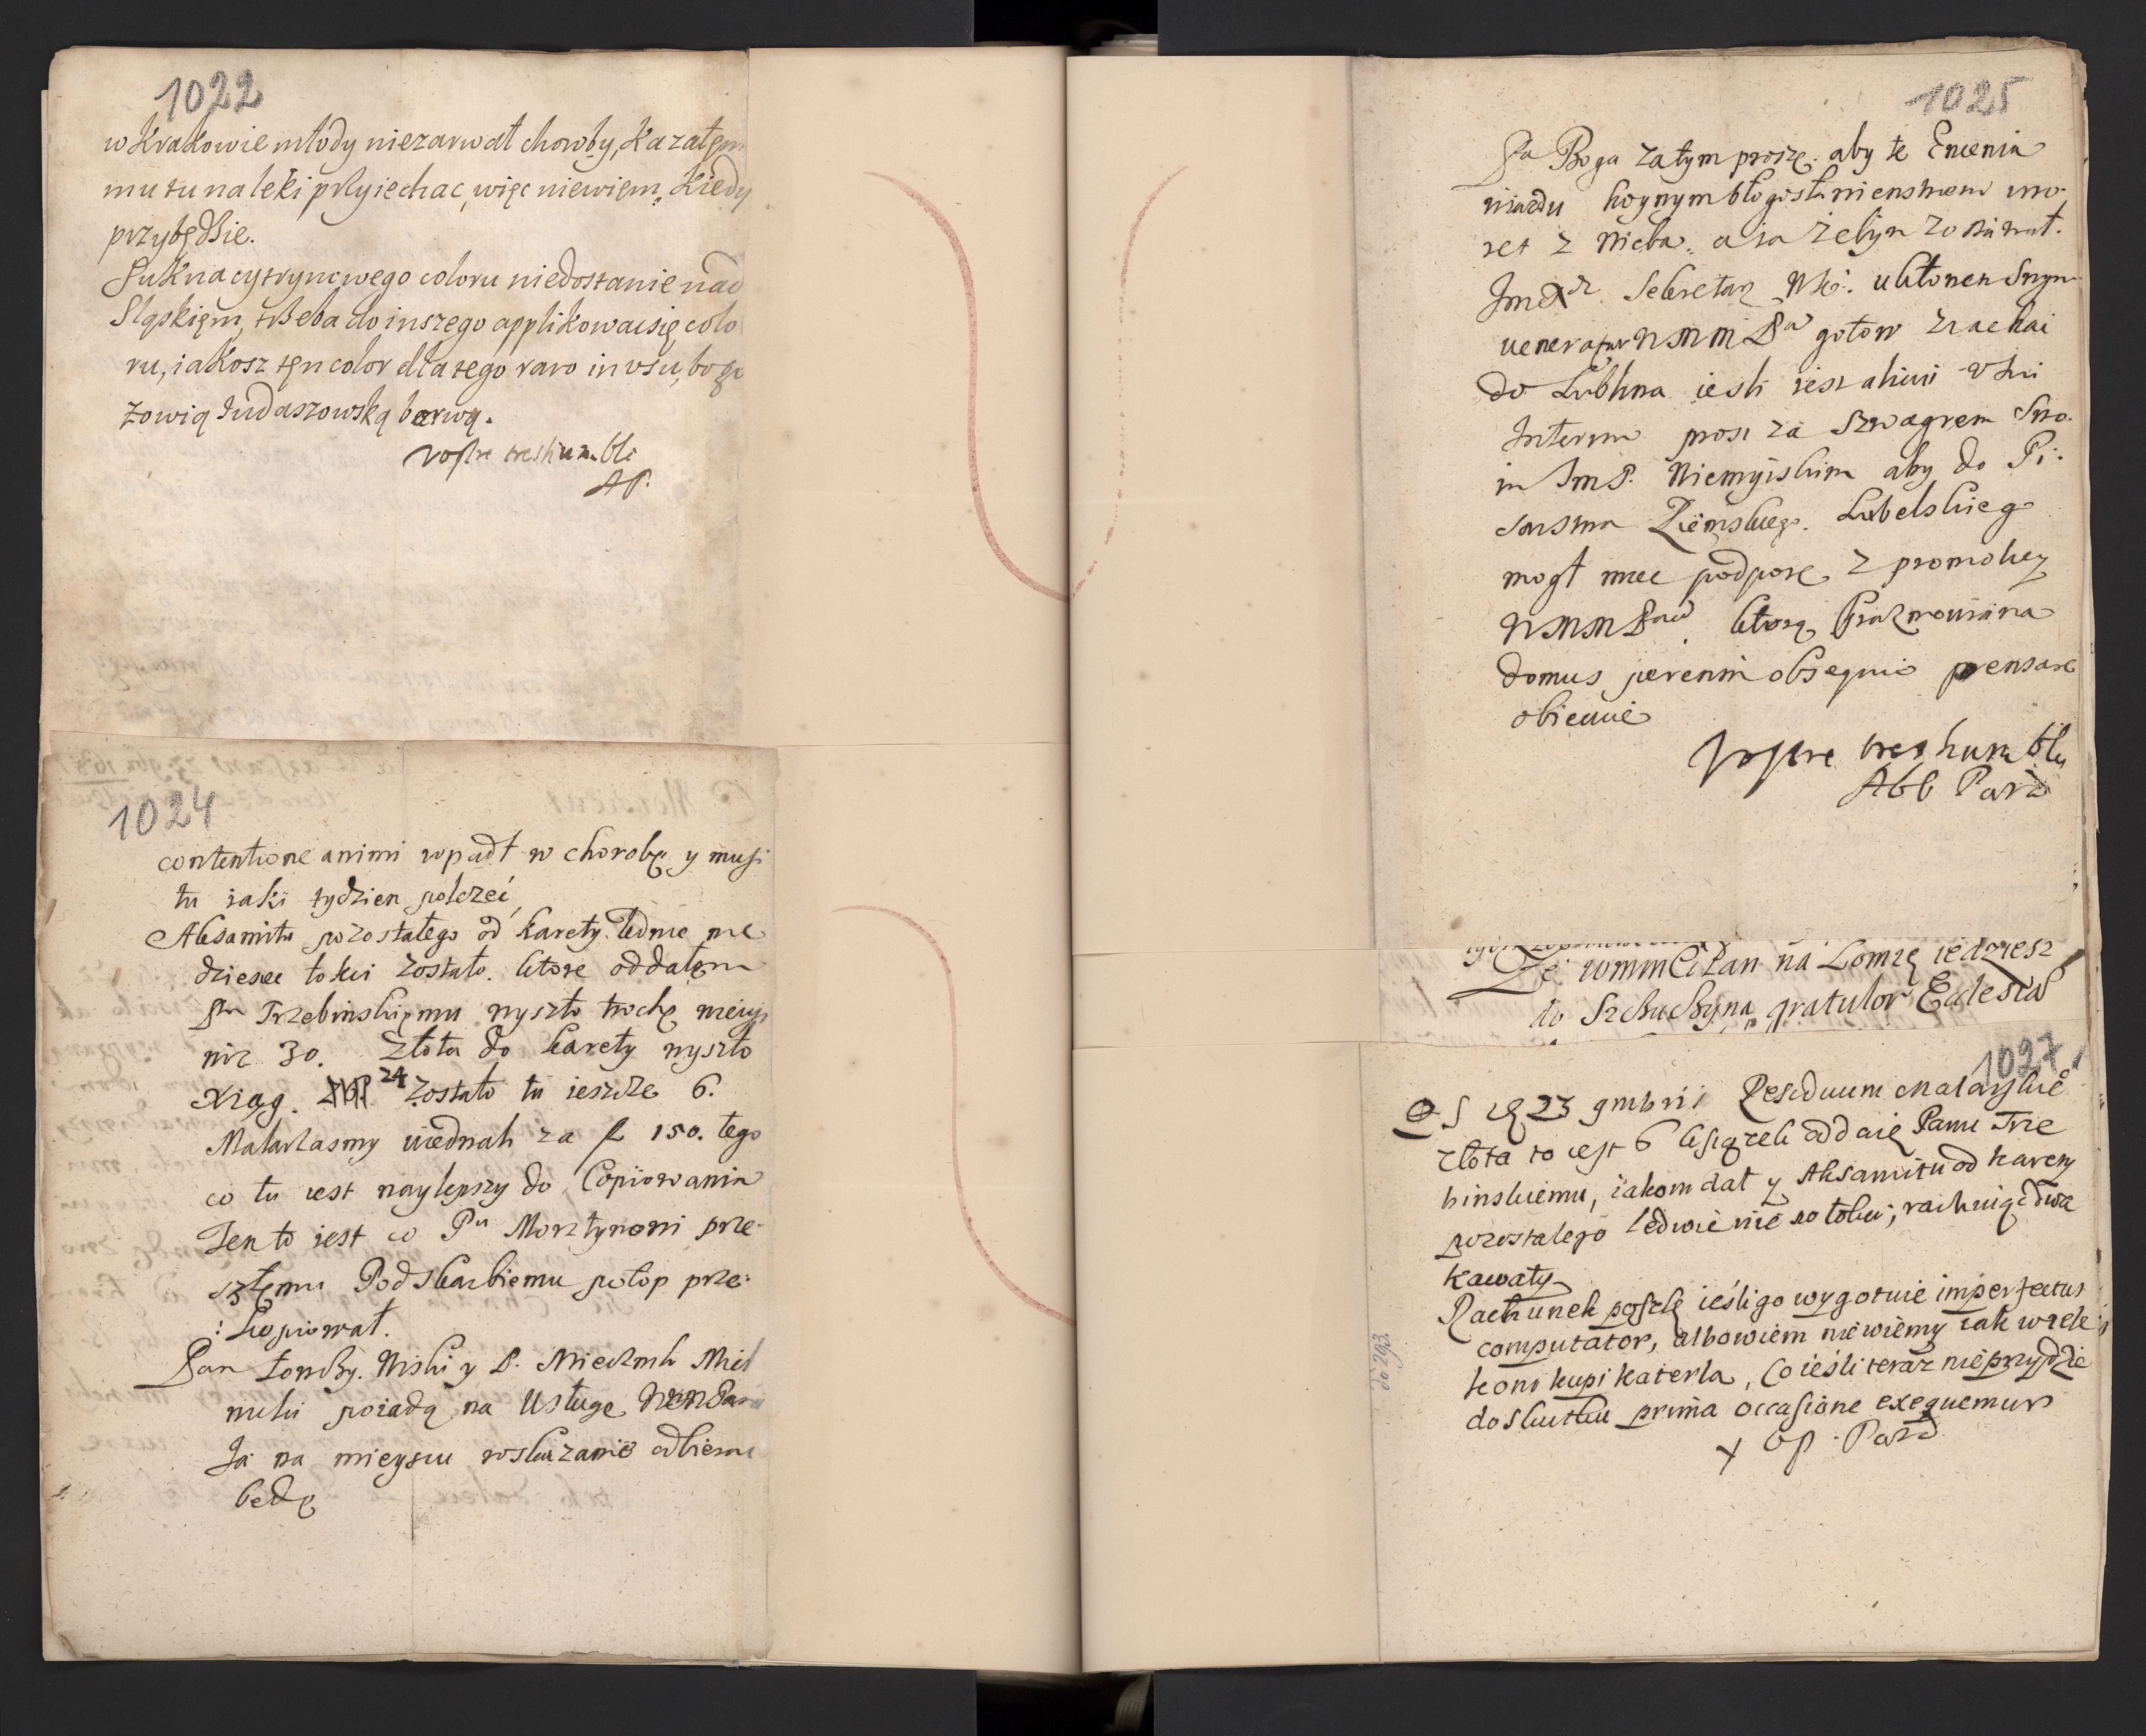 1022
w Krakowie młody niezarwał choroby, Kazałem
mu tu na leki przyiechac, więc niewięm, Kiedy
przybędzie.
Sukna cytrynowego coloru niedostanie nad
Sląskięm, trzeba do inszego applikowac się colo
ru, iakosz tęn color dla tego raro in usu, bo go
zowią Judaszowską barwą.
vostre treshumble
AP.
1024
contentione animi wpadł w chorobę y musi
tu iaki tydzien polezeć
Aksamitu pozostałego od karety ledwie nie
dziesiec łokci zostało. ktore oddałem
Pu Trzebinskiemu wyszło trochę mniey
niz 30. Złota do karety wyszło
Xiąg. 24 zostało tu ieszcze 6.
Malarzasmy uiednali za fl 150. tego
co tu iest naylepszy do Copiowania
Ten to iest co Pu Morztynowi prze-
szłemu Podskarbiemu potop prze:
:kopiował.
Pan Łonczy. Niski y P. Miecznik Miel
nicki poiadą na Usługę
Ja na mieyscu wskazanie odbierac
będę
1025
Pa Boga zatym proszę. aby te Encenia
wiazdu hoynym błogosławienstwem
z Nieba. a ia zebym
Sekretarz ukłonem Swym
veneratur WMM Pa gotow ziachai
do Lublina iesli
Interim prosi za Szwagrem Swo-
im ImP. Niemyiskim aby do Pi:
sarstwa Ziemskiego. Lubelskiego
mogł miec podporę z promoliey
WMMPana. ktorą Prazmowiana
domus perenni obsequio pensare
obiecuie
Vostre treshumble
Abb Pard
Ze WMMCi Pan na Łomzę iedziesz
do Szczuczyna, gratulor Ecclesia
1027
PS 23 9mbris Residuum Malarskie
złota to iest 6 ksiązek oddaię Panu Trze
binskiemu, iakom dał y Aksamitu od karety
pozostałego ledwie nie 10 łokci; rachuiąc dwa
kawały
Rachunek poszlę ieśli go wygotuie imperfectus
computator, albowiem niewiemy iak wiele
koni kupi Katerla, Co ieśli teraz nieprzydzie
do skutku prima occasione exequemur
X Op. Pard
do 293.